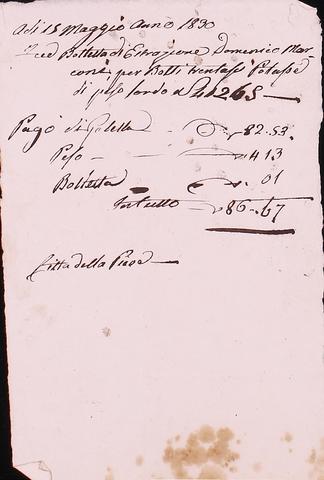 Adi 15 Maggio Anno 1830
ced Bolletta di Estrazione Domenico Mar
coni, per Botti trentasei Potasse
di peso lordo 41265
Pagò di Gabella 82.53.
Peso 4 13
Bolletta . 01
In tutto 86.67
Città della Pieve